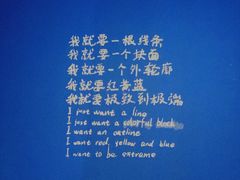 我就要一根线条
我就要一个块面
我就要一个外轮廓
我就要红黄蓝
我就要极致到极端
I just want a line
I just want a colorful block
I want an outline
I want red, yellow and blue
I want to be extreme